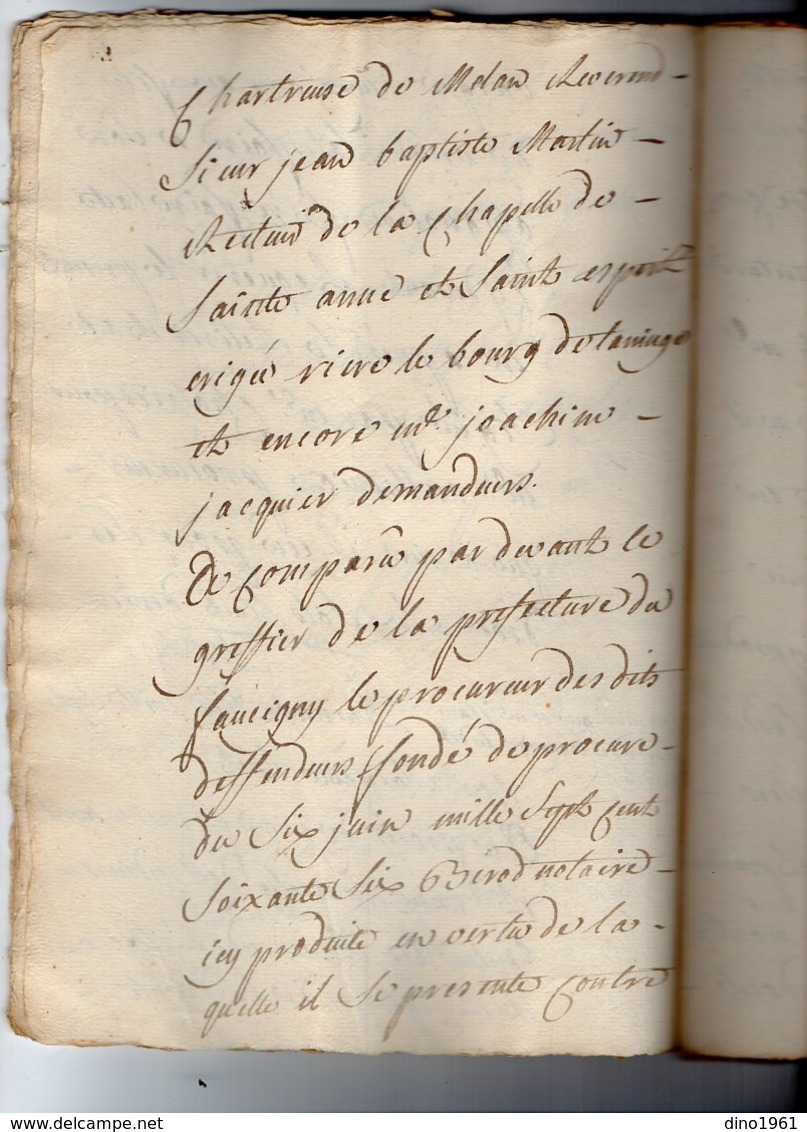 Chartreuse de Melan Reverend -
Sieur jean baptiste Martin -
Recteur de la Chapelle de -
Sainte anne et Saint esprit
erigée riere le bourg de taninge
et encore md. joachim -
jacquier demandeurs.
De comparu par devant le
greffier de la prefecture du
faucigny le procureur des dits
deffendeurs fondé de procure -
du Six juin mille Sept Cent
Soixante Six Berod notaire -
icy produite en vertu de la -
quelle il Se presente Contre
dino1961